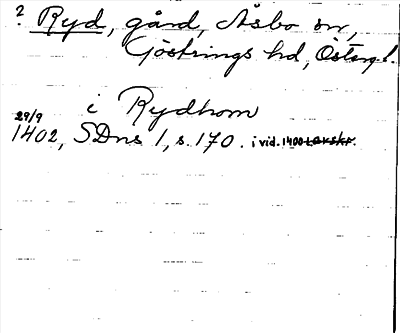 ? Ryd, gård, Åsbo sn,
Göstrings hd, Östergl.
i Rydhom
29/9
1402, SDns 1, s. 170. i vid. 1400